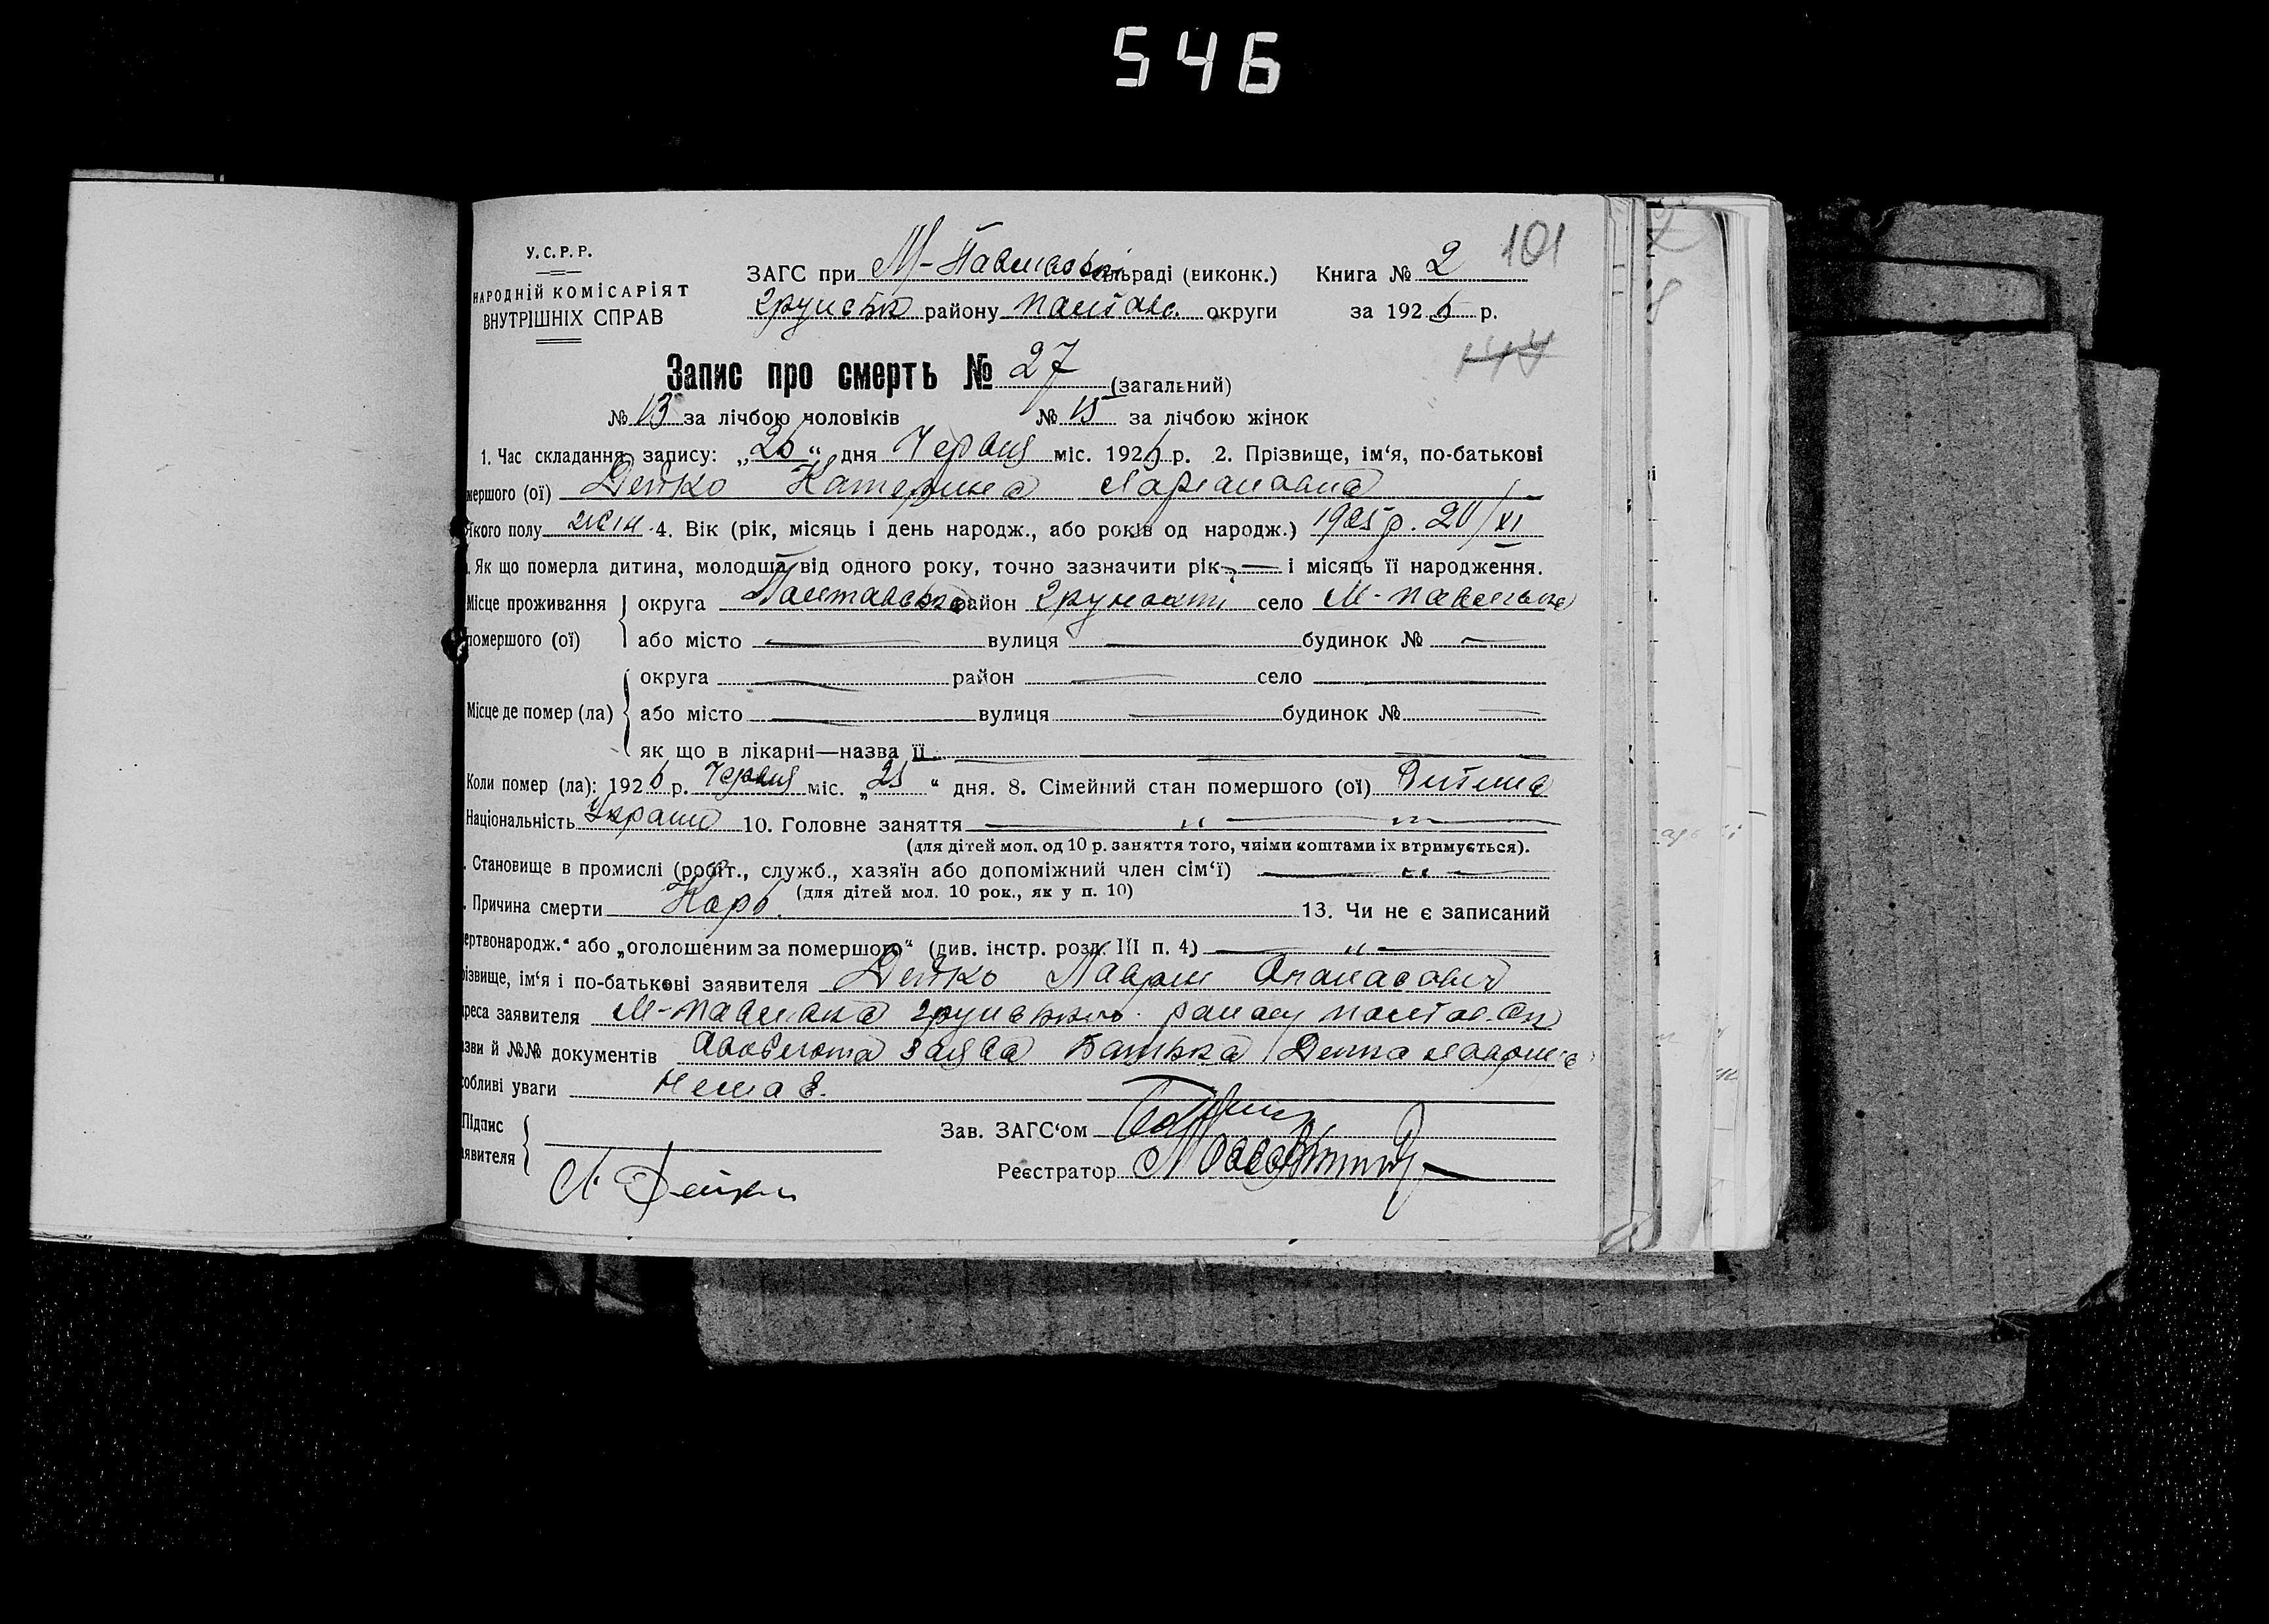 546
У.С.Р.Р.
НАРОДНІЙ КОМІСАРІЯТ
ВНУТРІШНІХ СПРАВ
ЗАГС при М-Павлівські сільраді (виконк.) Книга № 2 101
Грунськ району Полтавс. округи за 1926 р.
144
Запис про смерть № 27 (загальний)
№ 13 за лічбою чоловіків № 15 за лічбою жінок
1. Час складання запису: „26“ дня Червня міс. 1926 р. 2. Прізвище, ім‘я, по-батькові
мершого (ої) Дейко Катерина
якого полу жін. 4. Вік (рік, місяць і день народж., або років од народж.) 1925 р. 20/XI
. Як що померла дитина, молодша від одного року, точно зазначити рік — і місяць її народження.
Місце проживання округа Полтавська район Грунський село М-Павлівка
помершого (ої) або місто — вулиця — будинок № —
округа — район — село —
Місце де помер (ла) або місто — вулиця — будинок № —
як що в лікарні—назва її —
Коли помер (ла): 1926 р. Червня міс. „25“ дня. 8. Сімейний стан помершого (ої) Дитина
Національність Украін 10. Головне заняття — „ —
(для дітей мол. од 10 р. заняття того, чиїми коштами їх втримується).
. Становище в промислі (робіт., служб., хазяїн або допоміжний член сім‘ї) — „ —
(для дітей мол. 10 рок., як у п. 10)
. Причина смерти Кору. 13. Чи не є записаний
ертвонародж.“ або „оголошеним за помершого“ (див. інстр. розд. III п. 4) — „ —
різвище, ім‘я і по-батькові заявителя Дейко Лаврін Опанасович
дреса заявителя М-Павлівка Грунського району Полтав. Ок
азви й №№ документів заява Батька Дейка Лавріна
собливі уваги Немає.
Підпис
аявителя
Зав. ЗАГС‘ом
Реєстратор
Л. Дейко